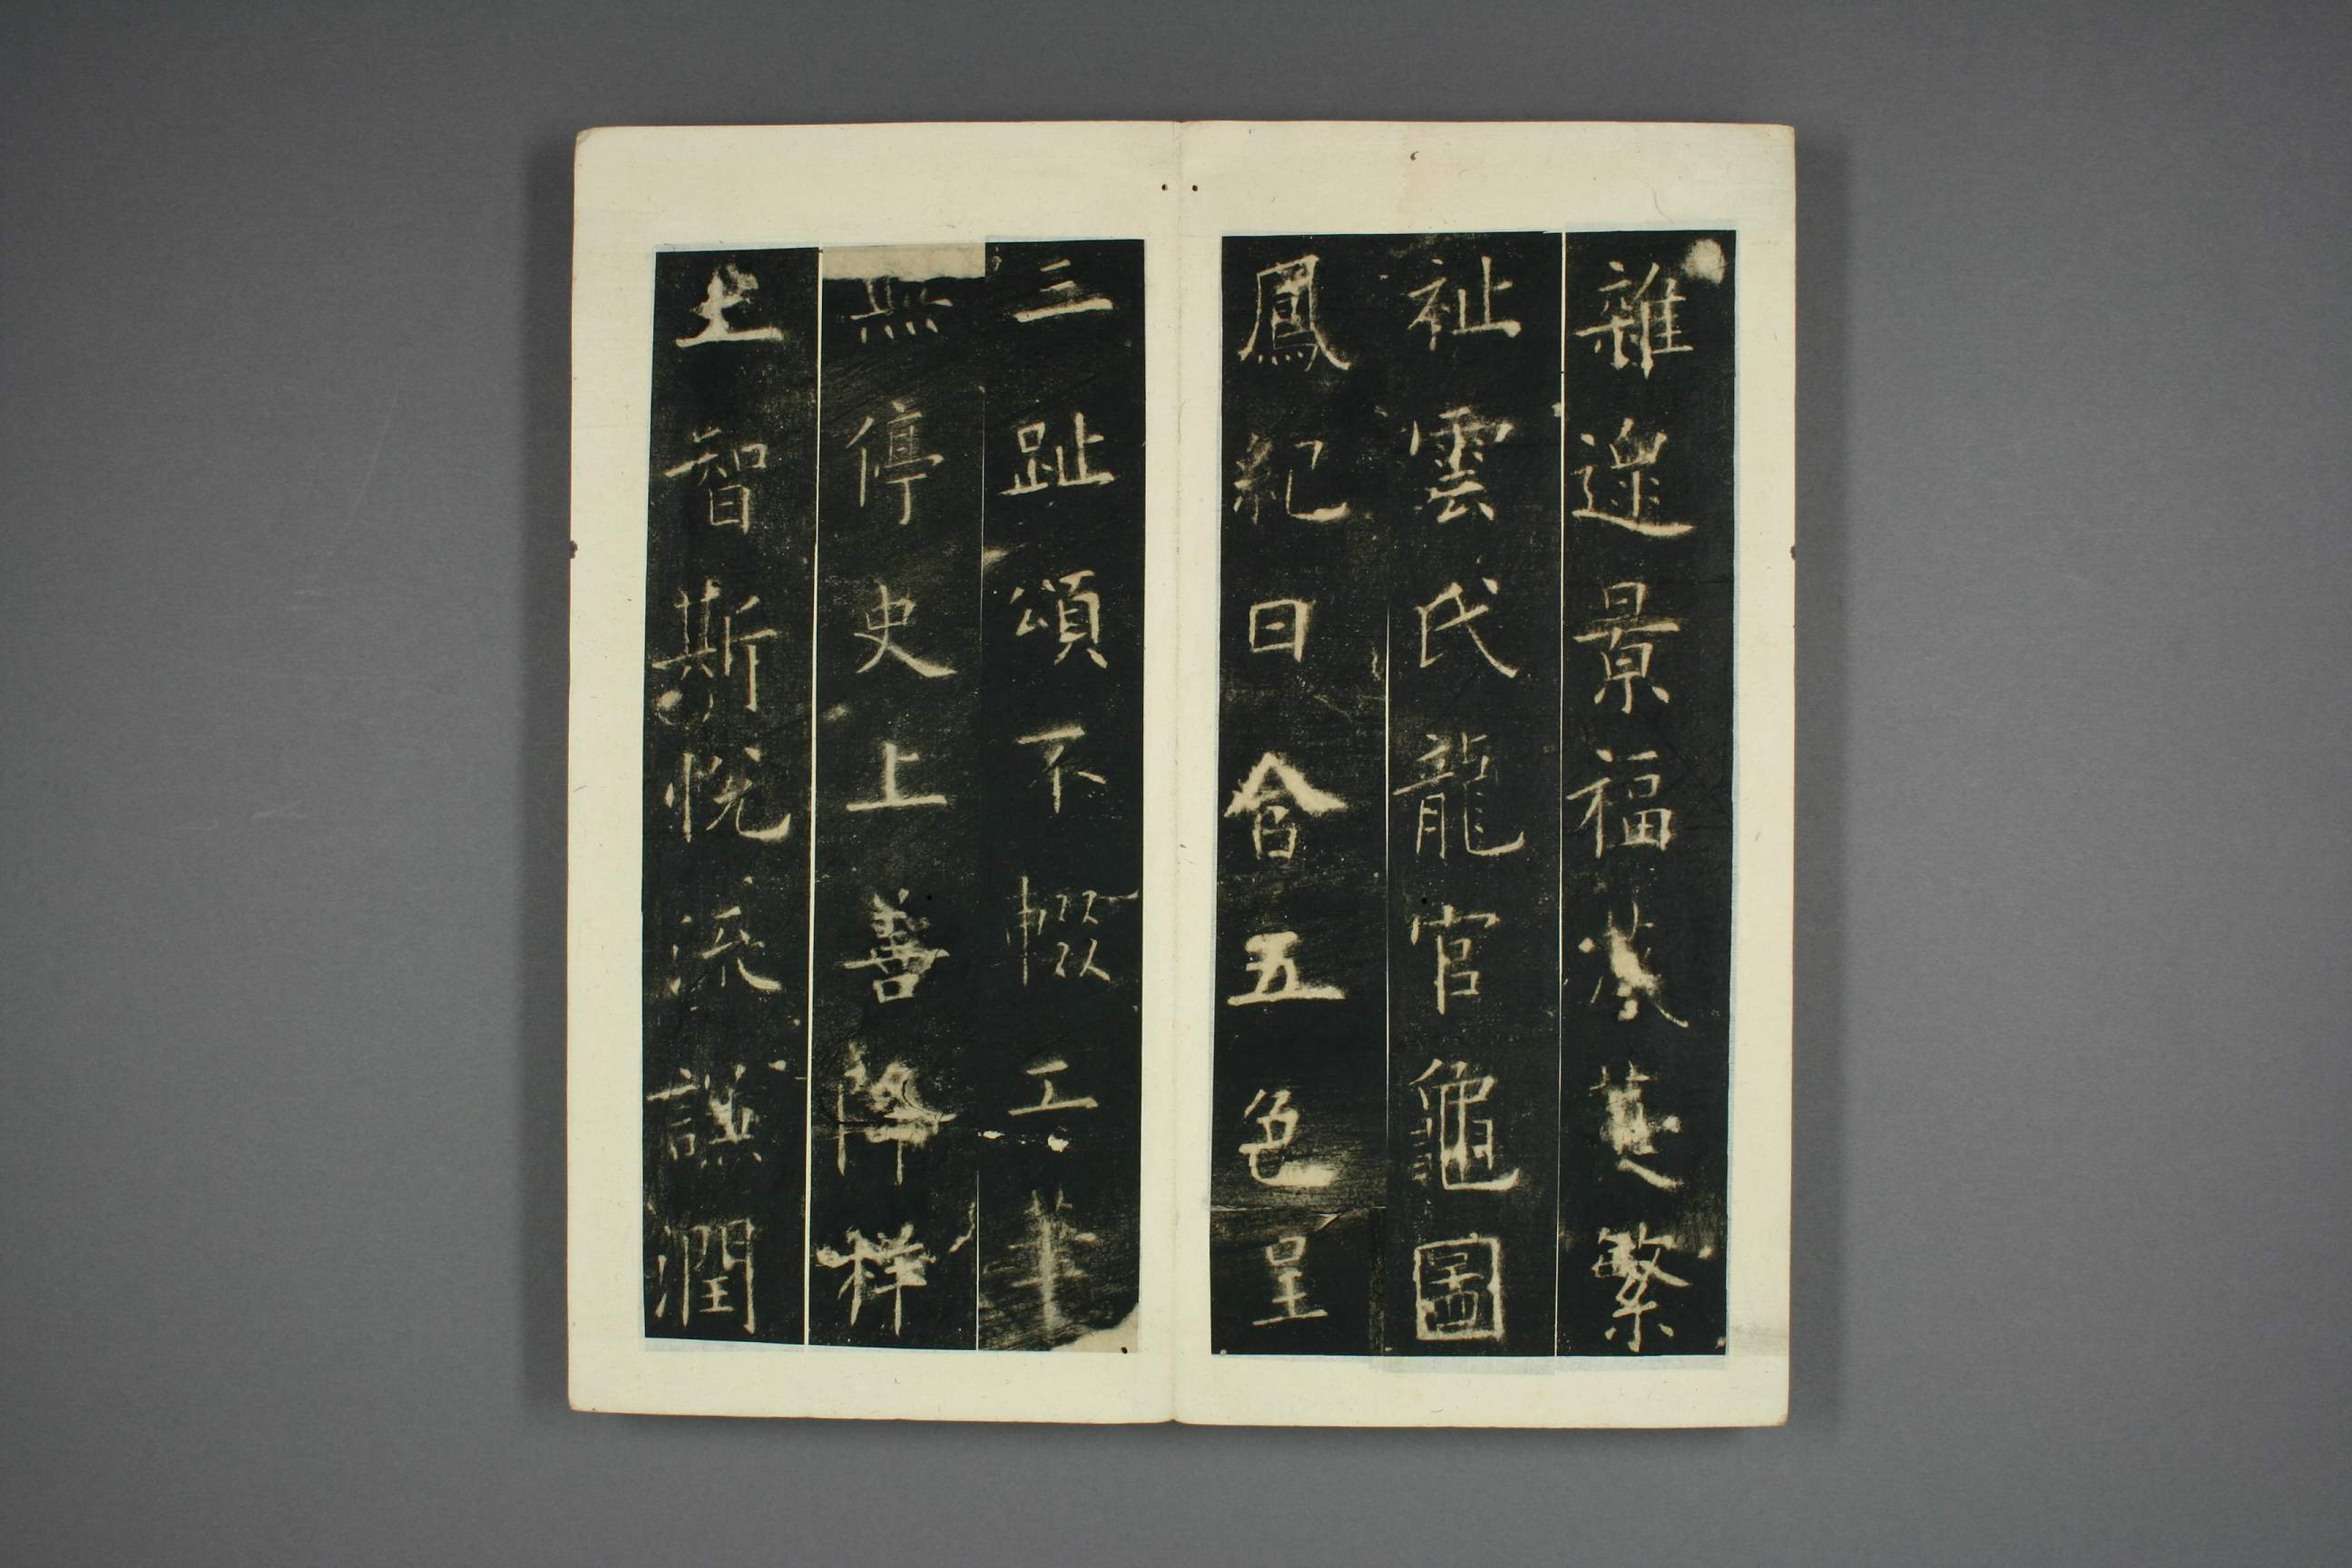 雜遝景福葳蕤繁
祉雲氏龍官龜圖
鳳紀日含五色呈
三趾頌不輟工筆
無停史上善降祥
上智斯悅流謙潤